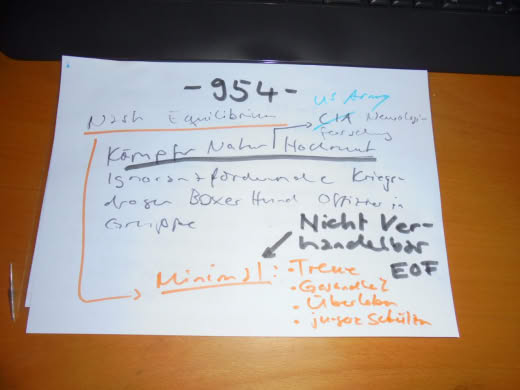 - 954 -
US Army
Nash Equilibrium
CIA Neurologie
Forschung
Kämpfer Natur Hochmut
Ignoranzfördernde Kriegs-
drogen Boxer Hund Offizier in
Gruppe
Nicht Ver-
handelbar
EOF
Minimal:
• Treue
• Gesundheit
• Überleben
• junge schützen